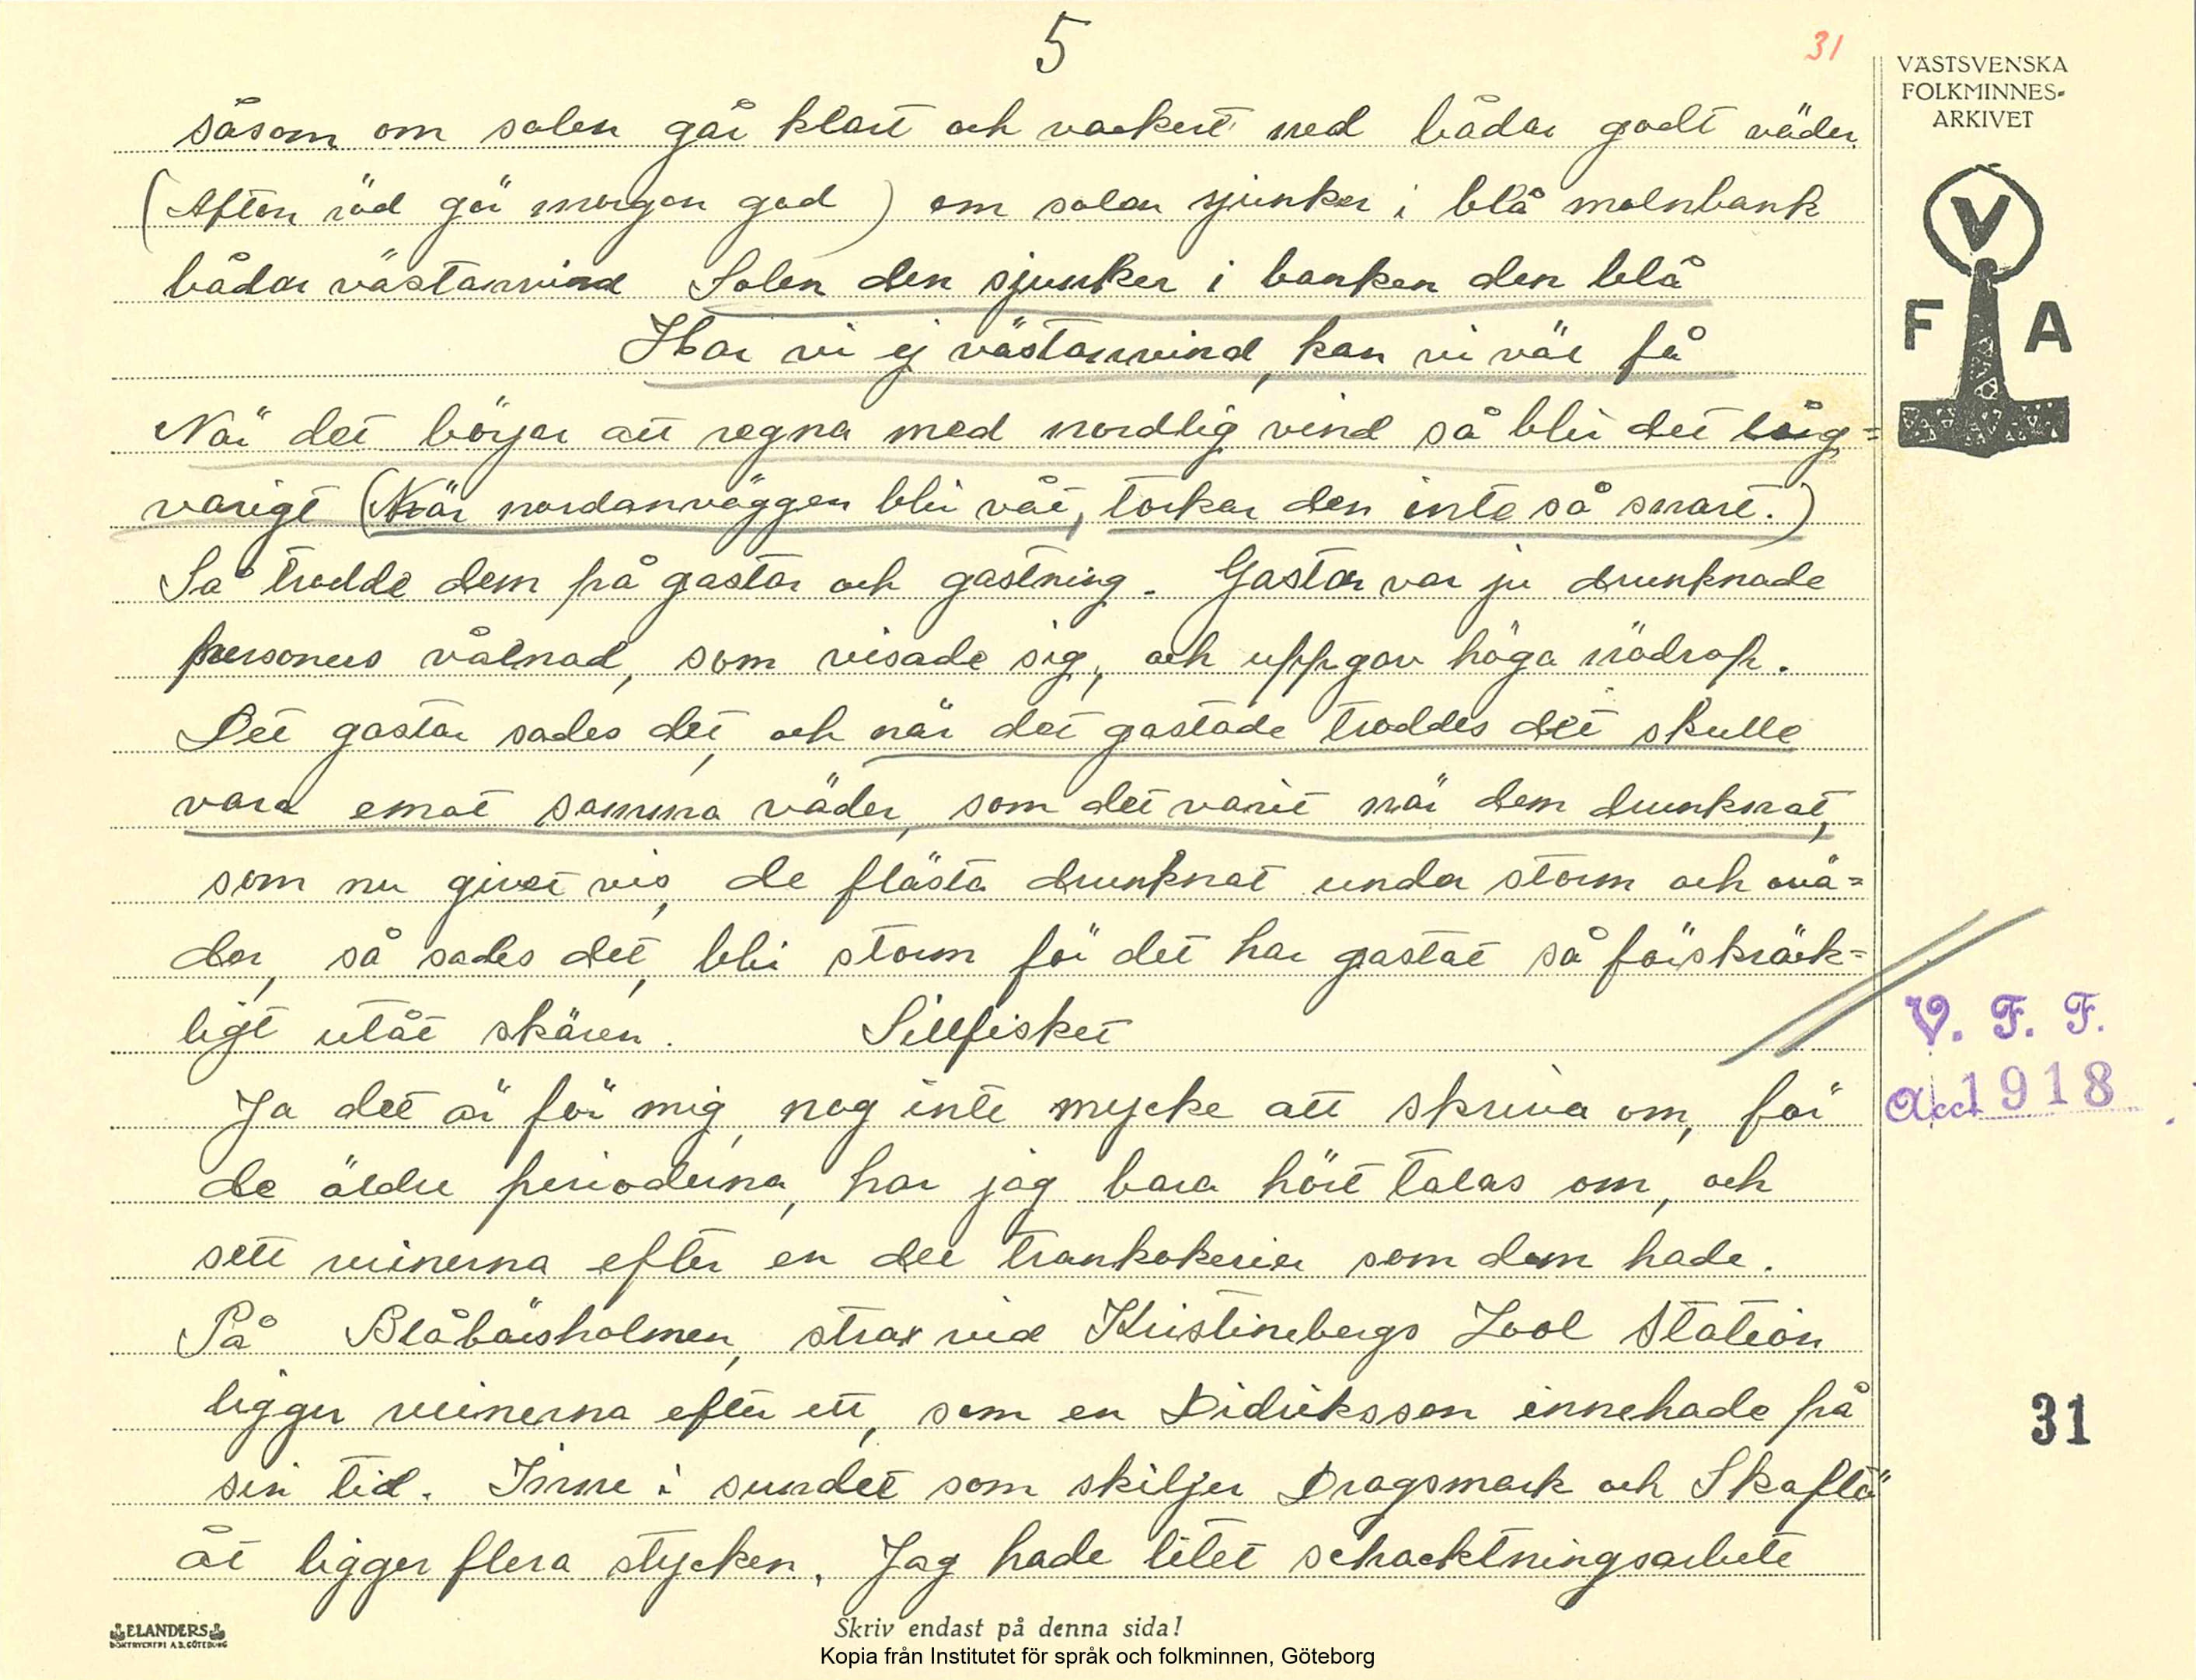 5
31
VÄSTSVENSKA
FOLKMINNES-
ARKIVET
V
F A
såsom om solen går klart och vackert ned bådar godt väder
(Afton röd gör morgon god) om solen sjunker i blå molnbank
bådar västanvind Solen den sjunker i banken den blå
Har vi ej västanvind, kan vi väl få
När det börjar att regna med nordlig vind så blir det lång=
varigt (När nordanväggen blir våt, torkar den inte så snart.)
Så trodde dem på gastar och gastning. Gastar var ju drunknade
personers vålnad, som visade sig, och uppgav höga nödrop.
Det gastar sades det, och när det gastade troddes det skulle
vara emot samma väder, som det varit när dem drunknat,
som nu givet vis, de flästa drunknat under storm och ovä=
der, så sades det, blir storm för det har gastat så förskräck=
ligt utåt skären. Sillfisket
V. F. F.
Ja det är för mig, nog inte mycke att skriva om, för
Acc 1918
de äldre perioderna, har jag bara hört talas om, och
sett ruinerna efter en del trankokerier som dem hade.
På Blåbärsholmen, strax vid Kristinebergs Zool Station
ligger ruinerna efter ett, som en Didriksson innehade på
31
sin tid. Inne i sundet som skiljer Dragsmark och Skaftö
åt ligger flera stycken. Jag hade litet schacktningsarbete
ELANDERS
BOKTRYCKERI A.B. GÖTEBORG
Skriv endast på denna sida!
Kopia från Institutet för språk och folkminnen, Göteborg